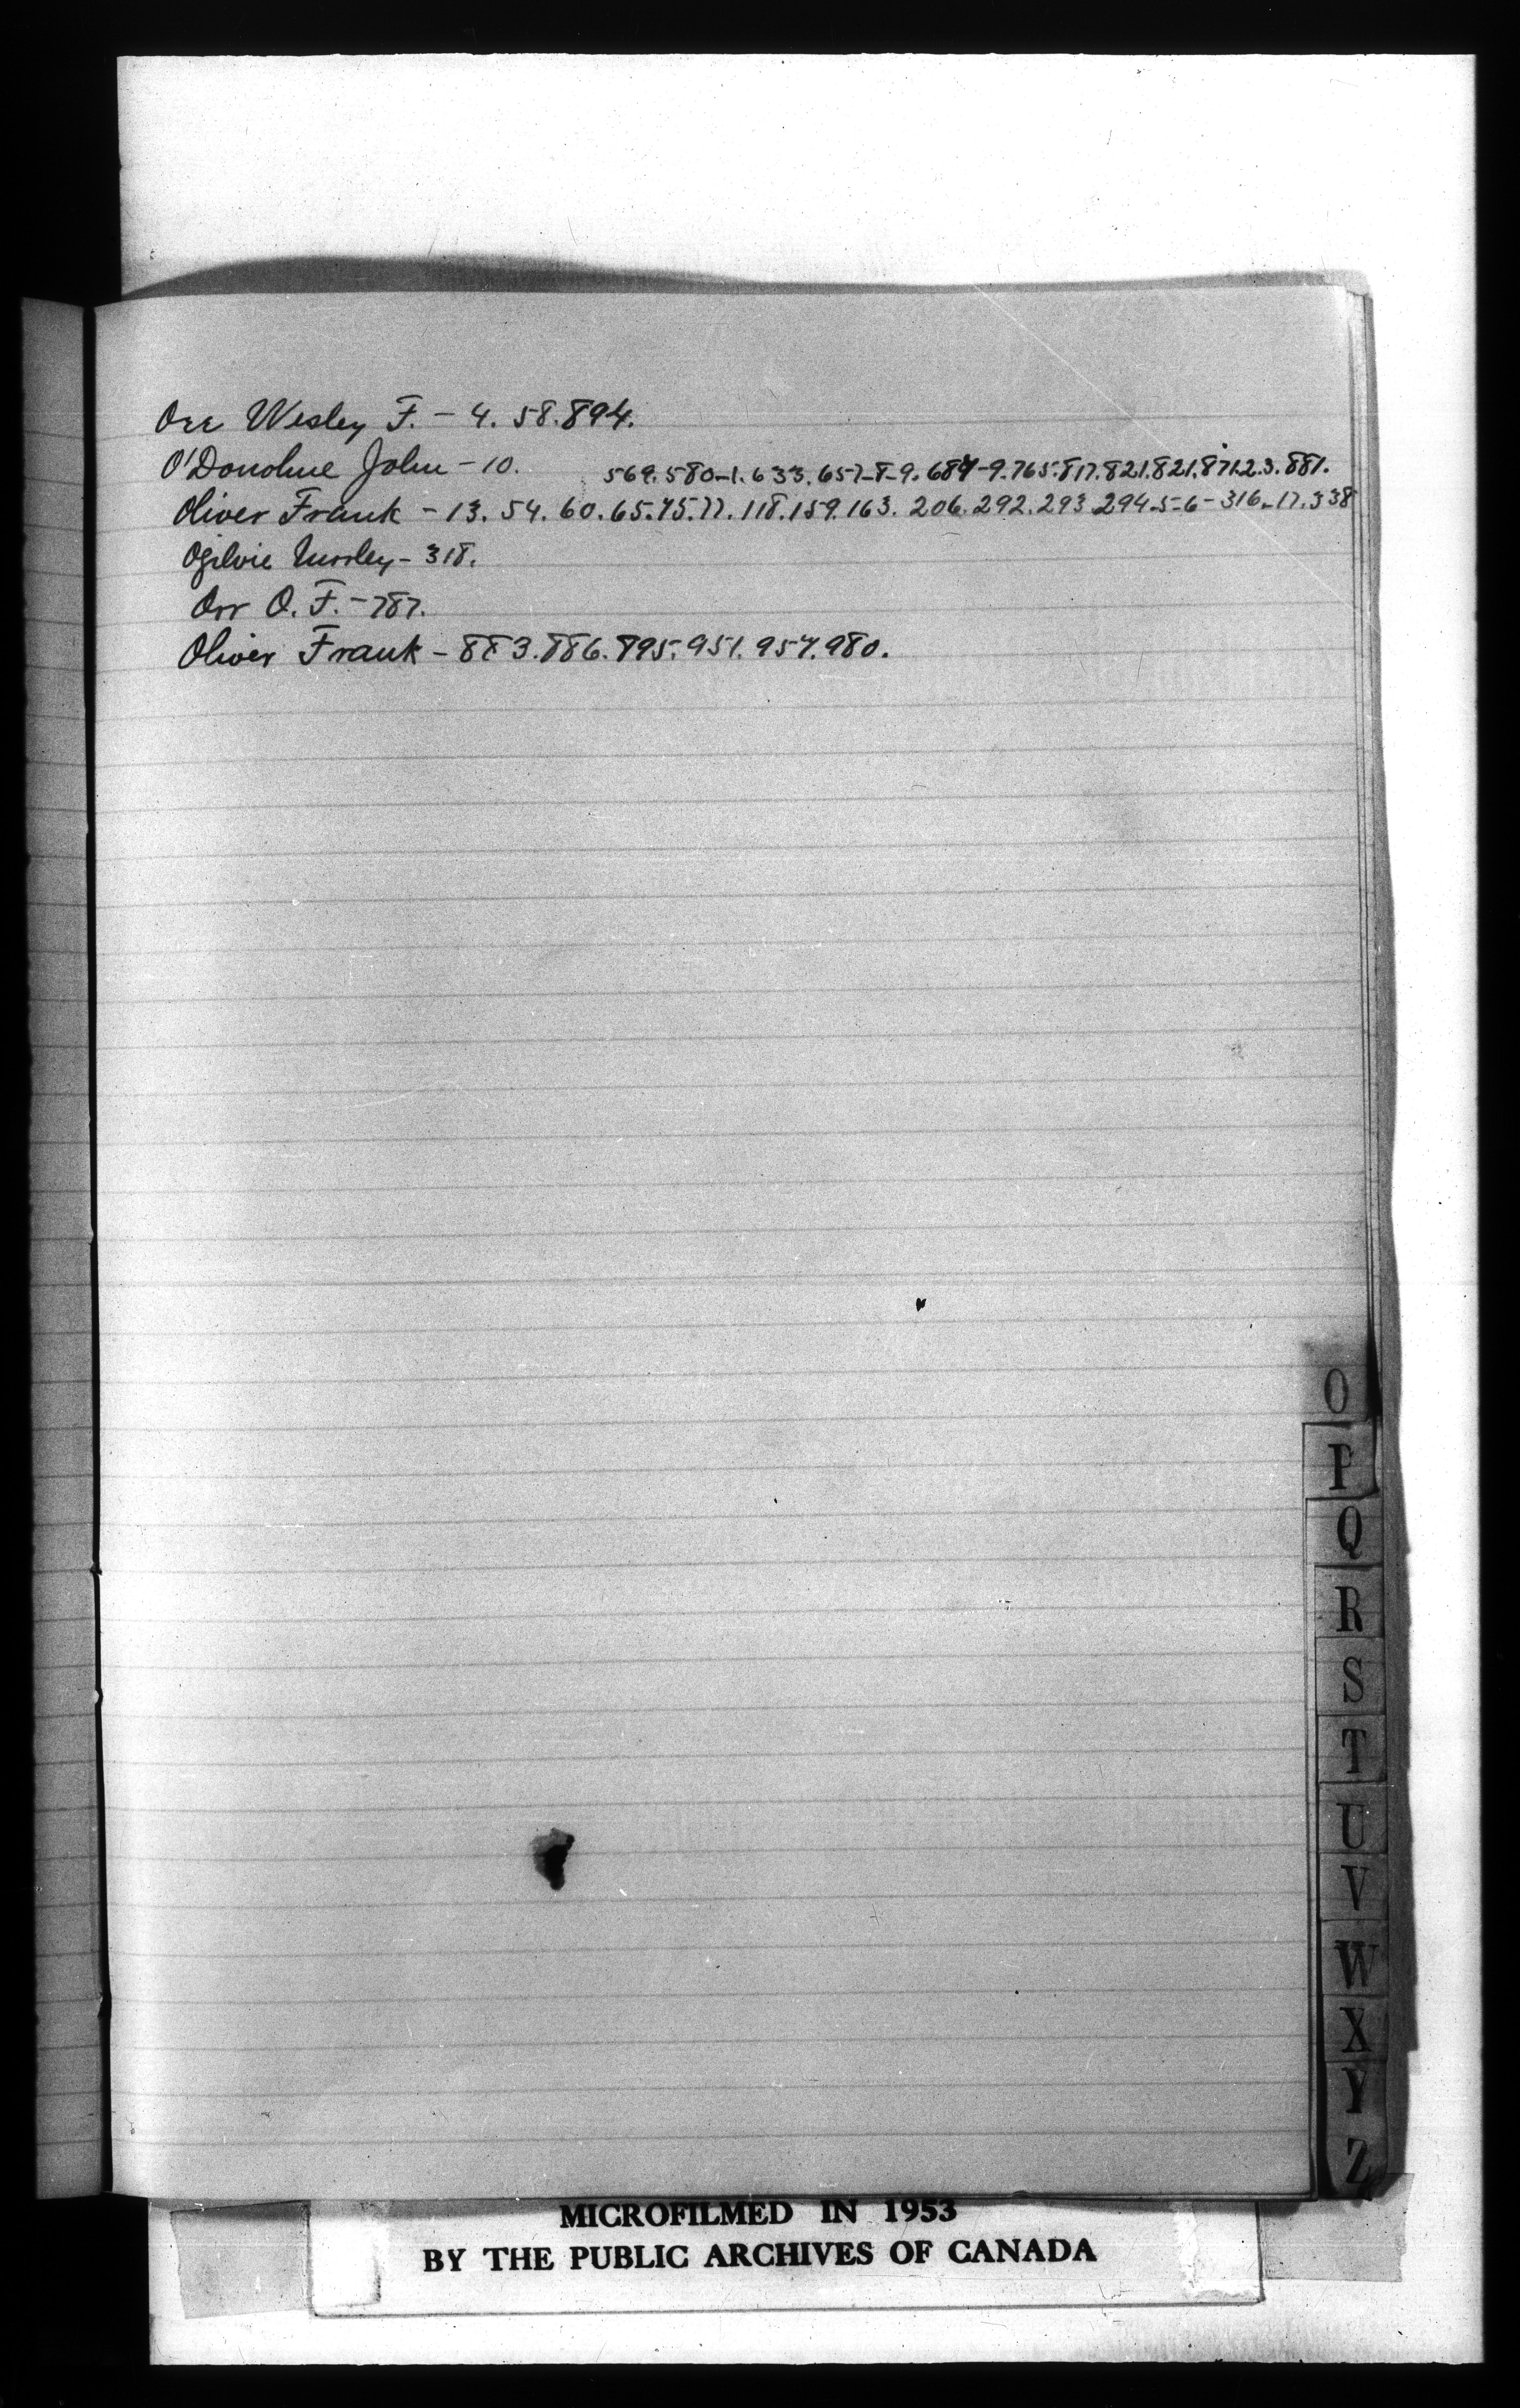 Orr Wesley F. - 4. 58. 894.
O'Donohue John - 10. 569. 580-1. 633. 657-8-9. 687-9. 765. 817. 821. 821. 871.2.3. 881.
Oliver Frank - 13. 54. 60. 65. 75. 77. 118. 159. 163. 206. 292. 293. 294-5-6- 316-17. 338
Ogilvie - 318.
Orr O. F. - 787.
Oliver Frank - 883. 886. 895. 951. 957. 980.
O
P
Q
R
S
T
U
V
W
X
Y
Z
MICROFILMED IN 1953
BY THE PUBLIC ARCHIVES OF CANADA